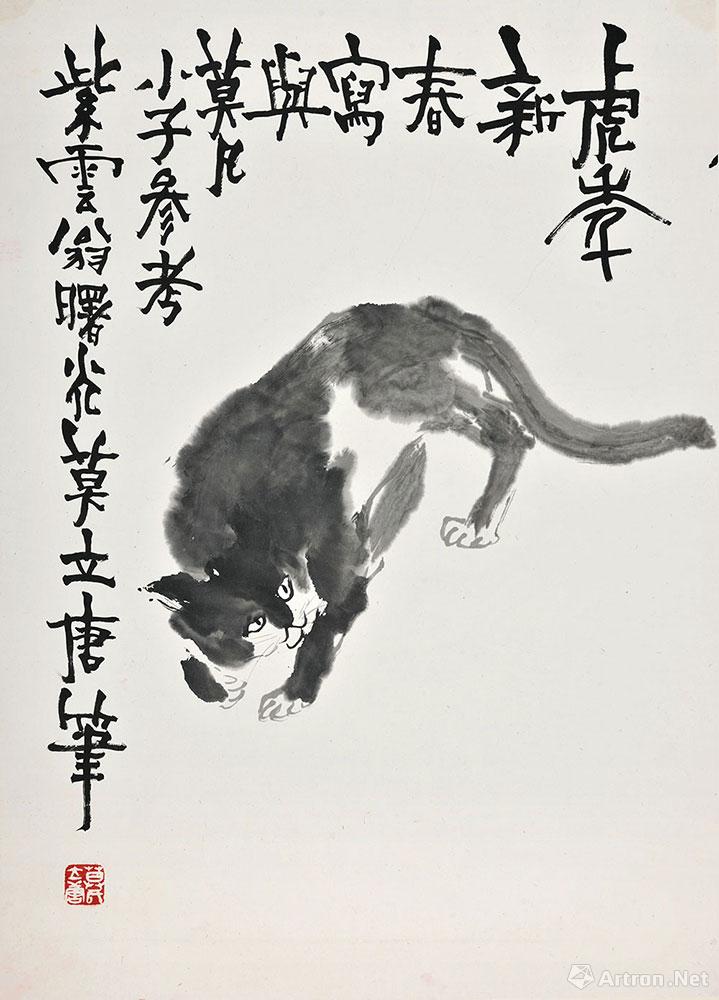 虎年
新
春
寫
與
莫
小子參考
紫雲翁曙光莫立唐筆
莫氏
立唐
Artron.Net